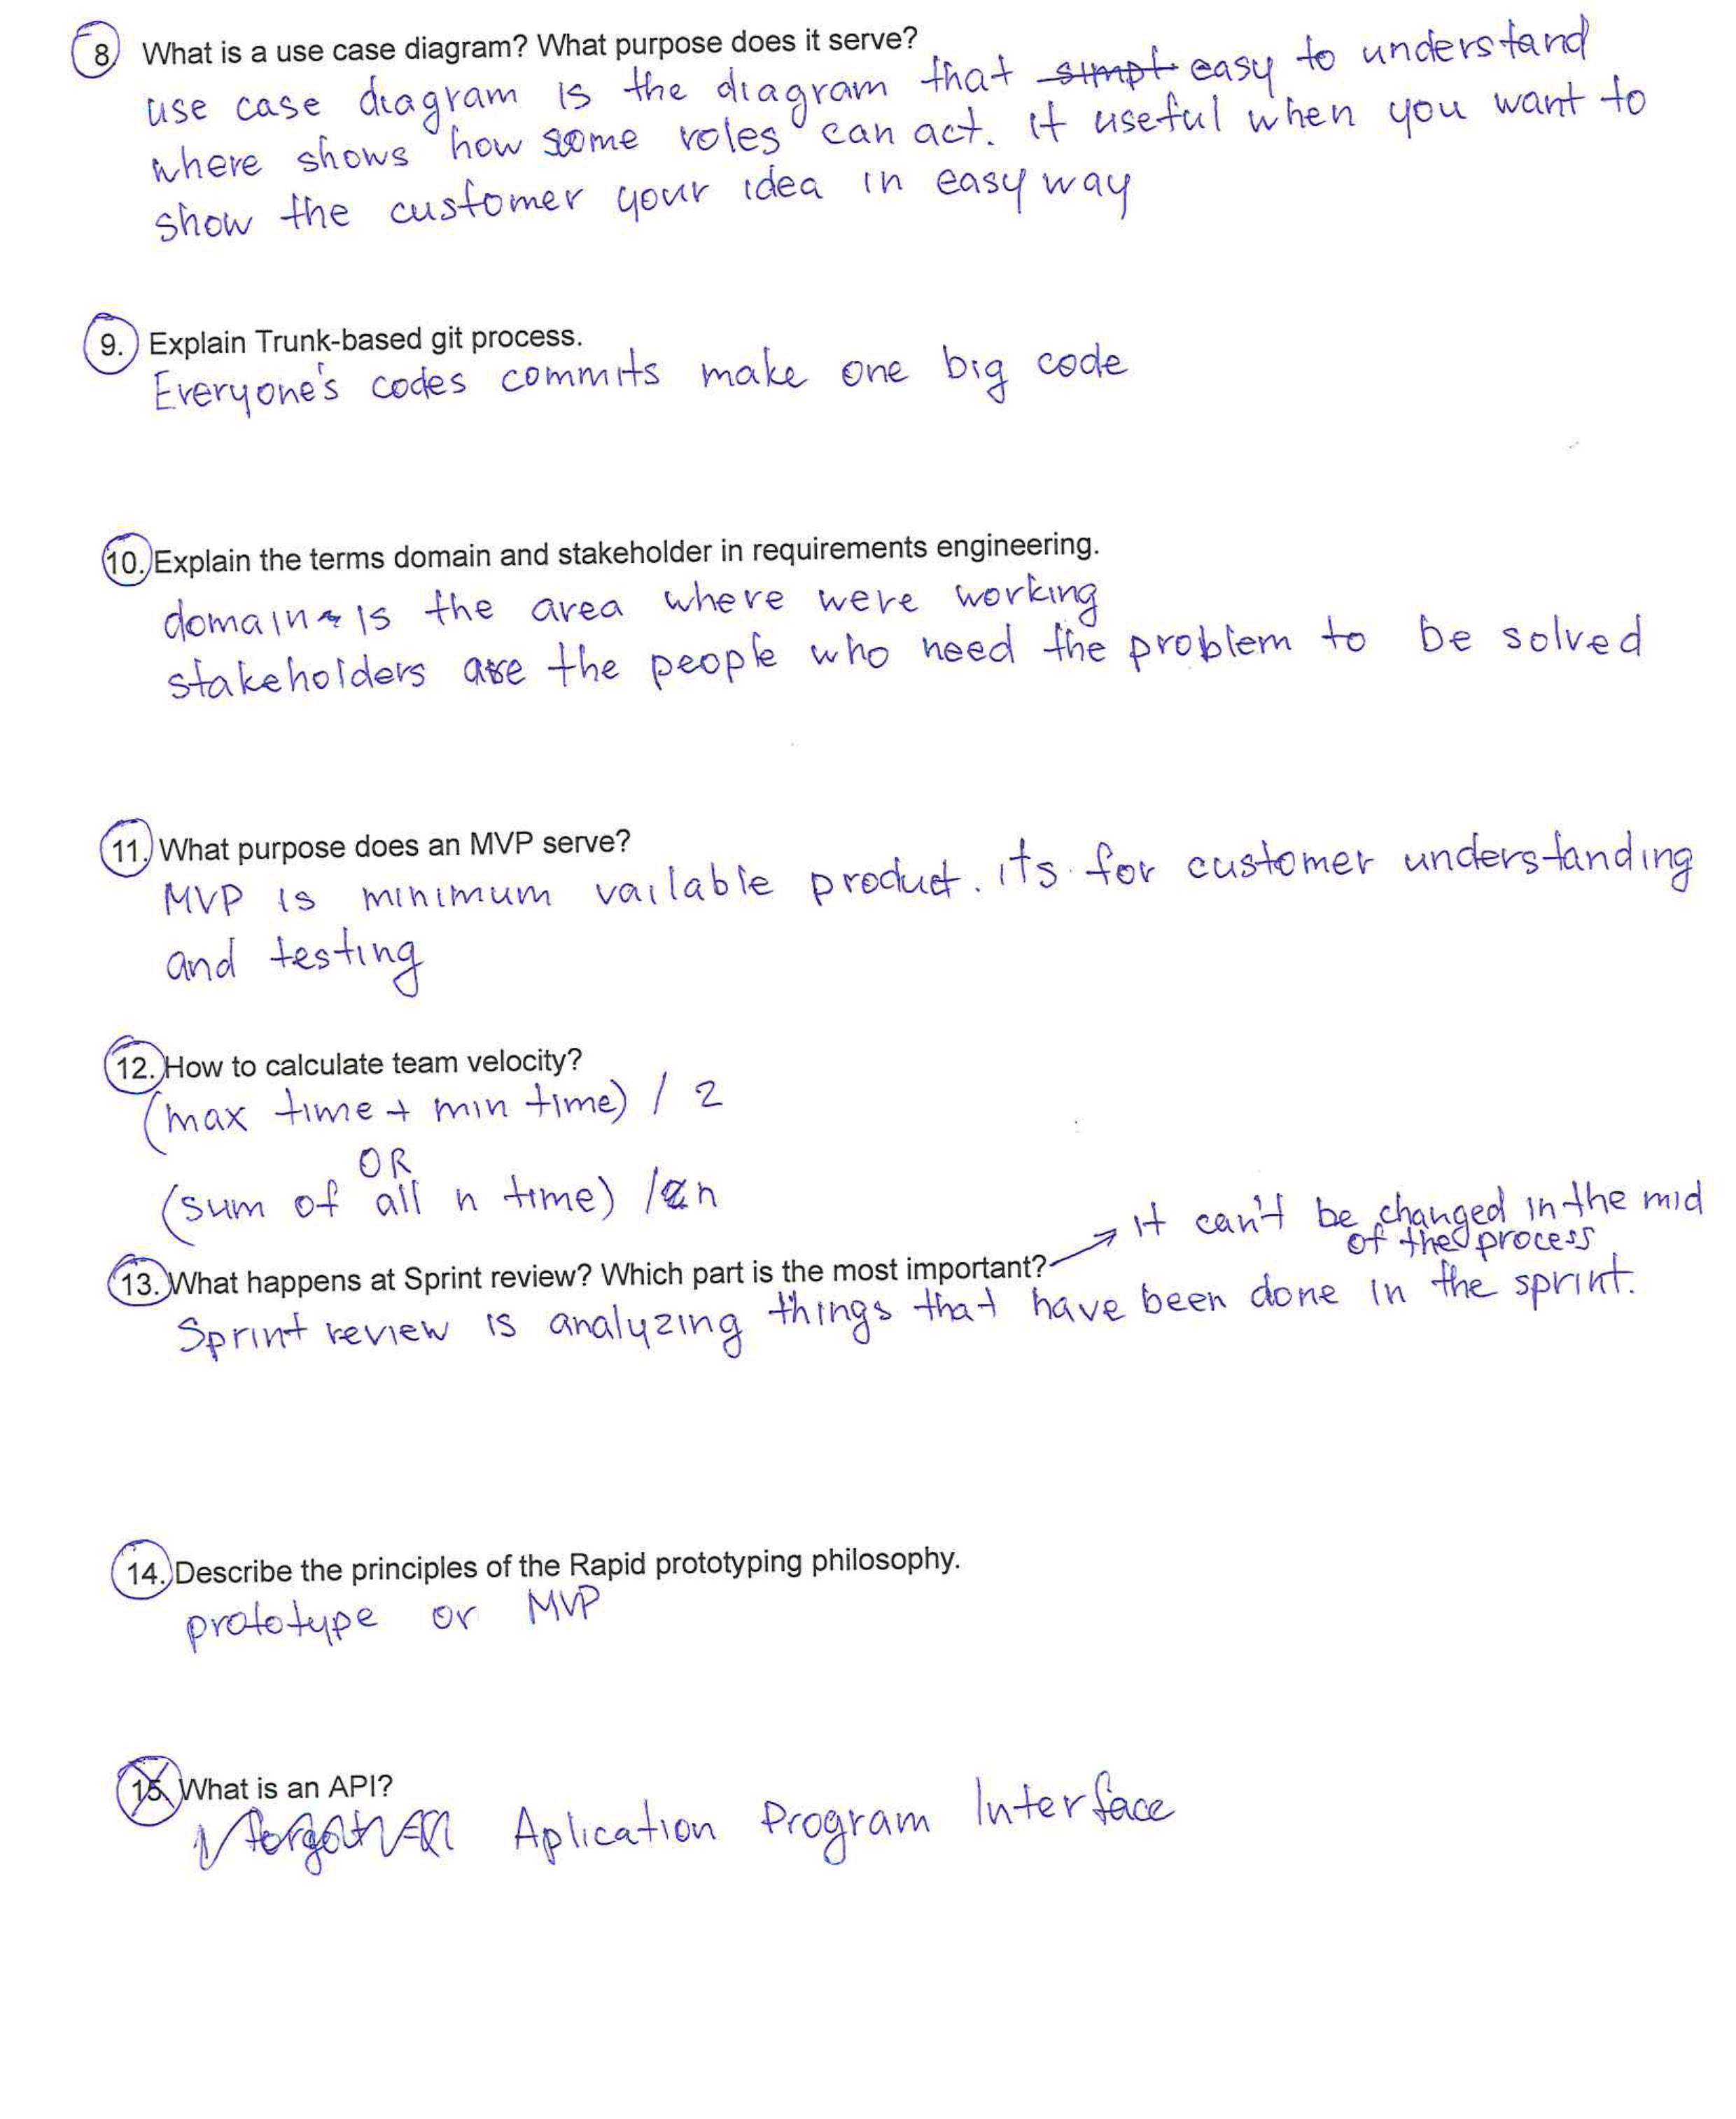 8. What is a use case diagram? What purpose does it serve?
use case diagram is the diagram that easy to understand
where shows how some roles can act. it useful when you want to
show the customer your idea in easy way
9. Explain Trunk-based git process.
Everyone's codes commits make one big code
10. Explain the terms domain and stakeholder in requirements engineering.
domain is the area where were working
stakeholders are the people who need the problem to be solved
11. What purpose does an MVP serve?
MVP is minimum vailable product. its for customer understanding
and testing
12. How to calculate team velocity?
(max time + min time) / 2
OR
(sum of all n time) / n
it can't be changed in the mid
of the process
13. What happens at Sprint review? Which part is the most important?
Sprint review is analyzing things that have been done in the sprint.
14. Describe the principles of the Rapid prototyping philosophy.
prototype or MVP
15. What is an API?
Aplication Program Interface